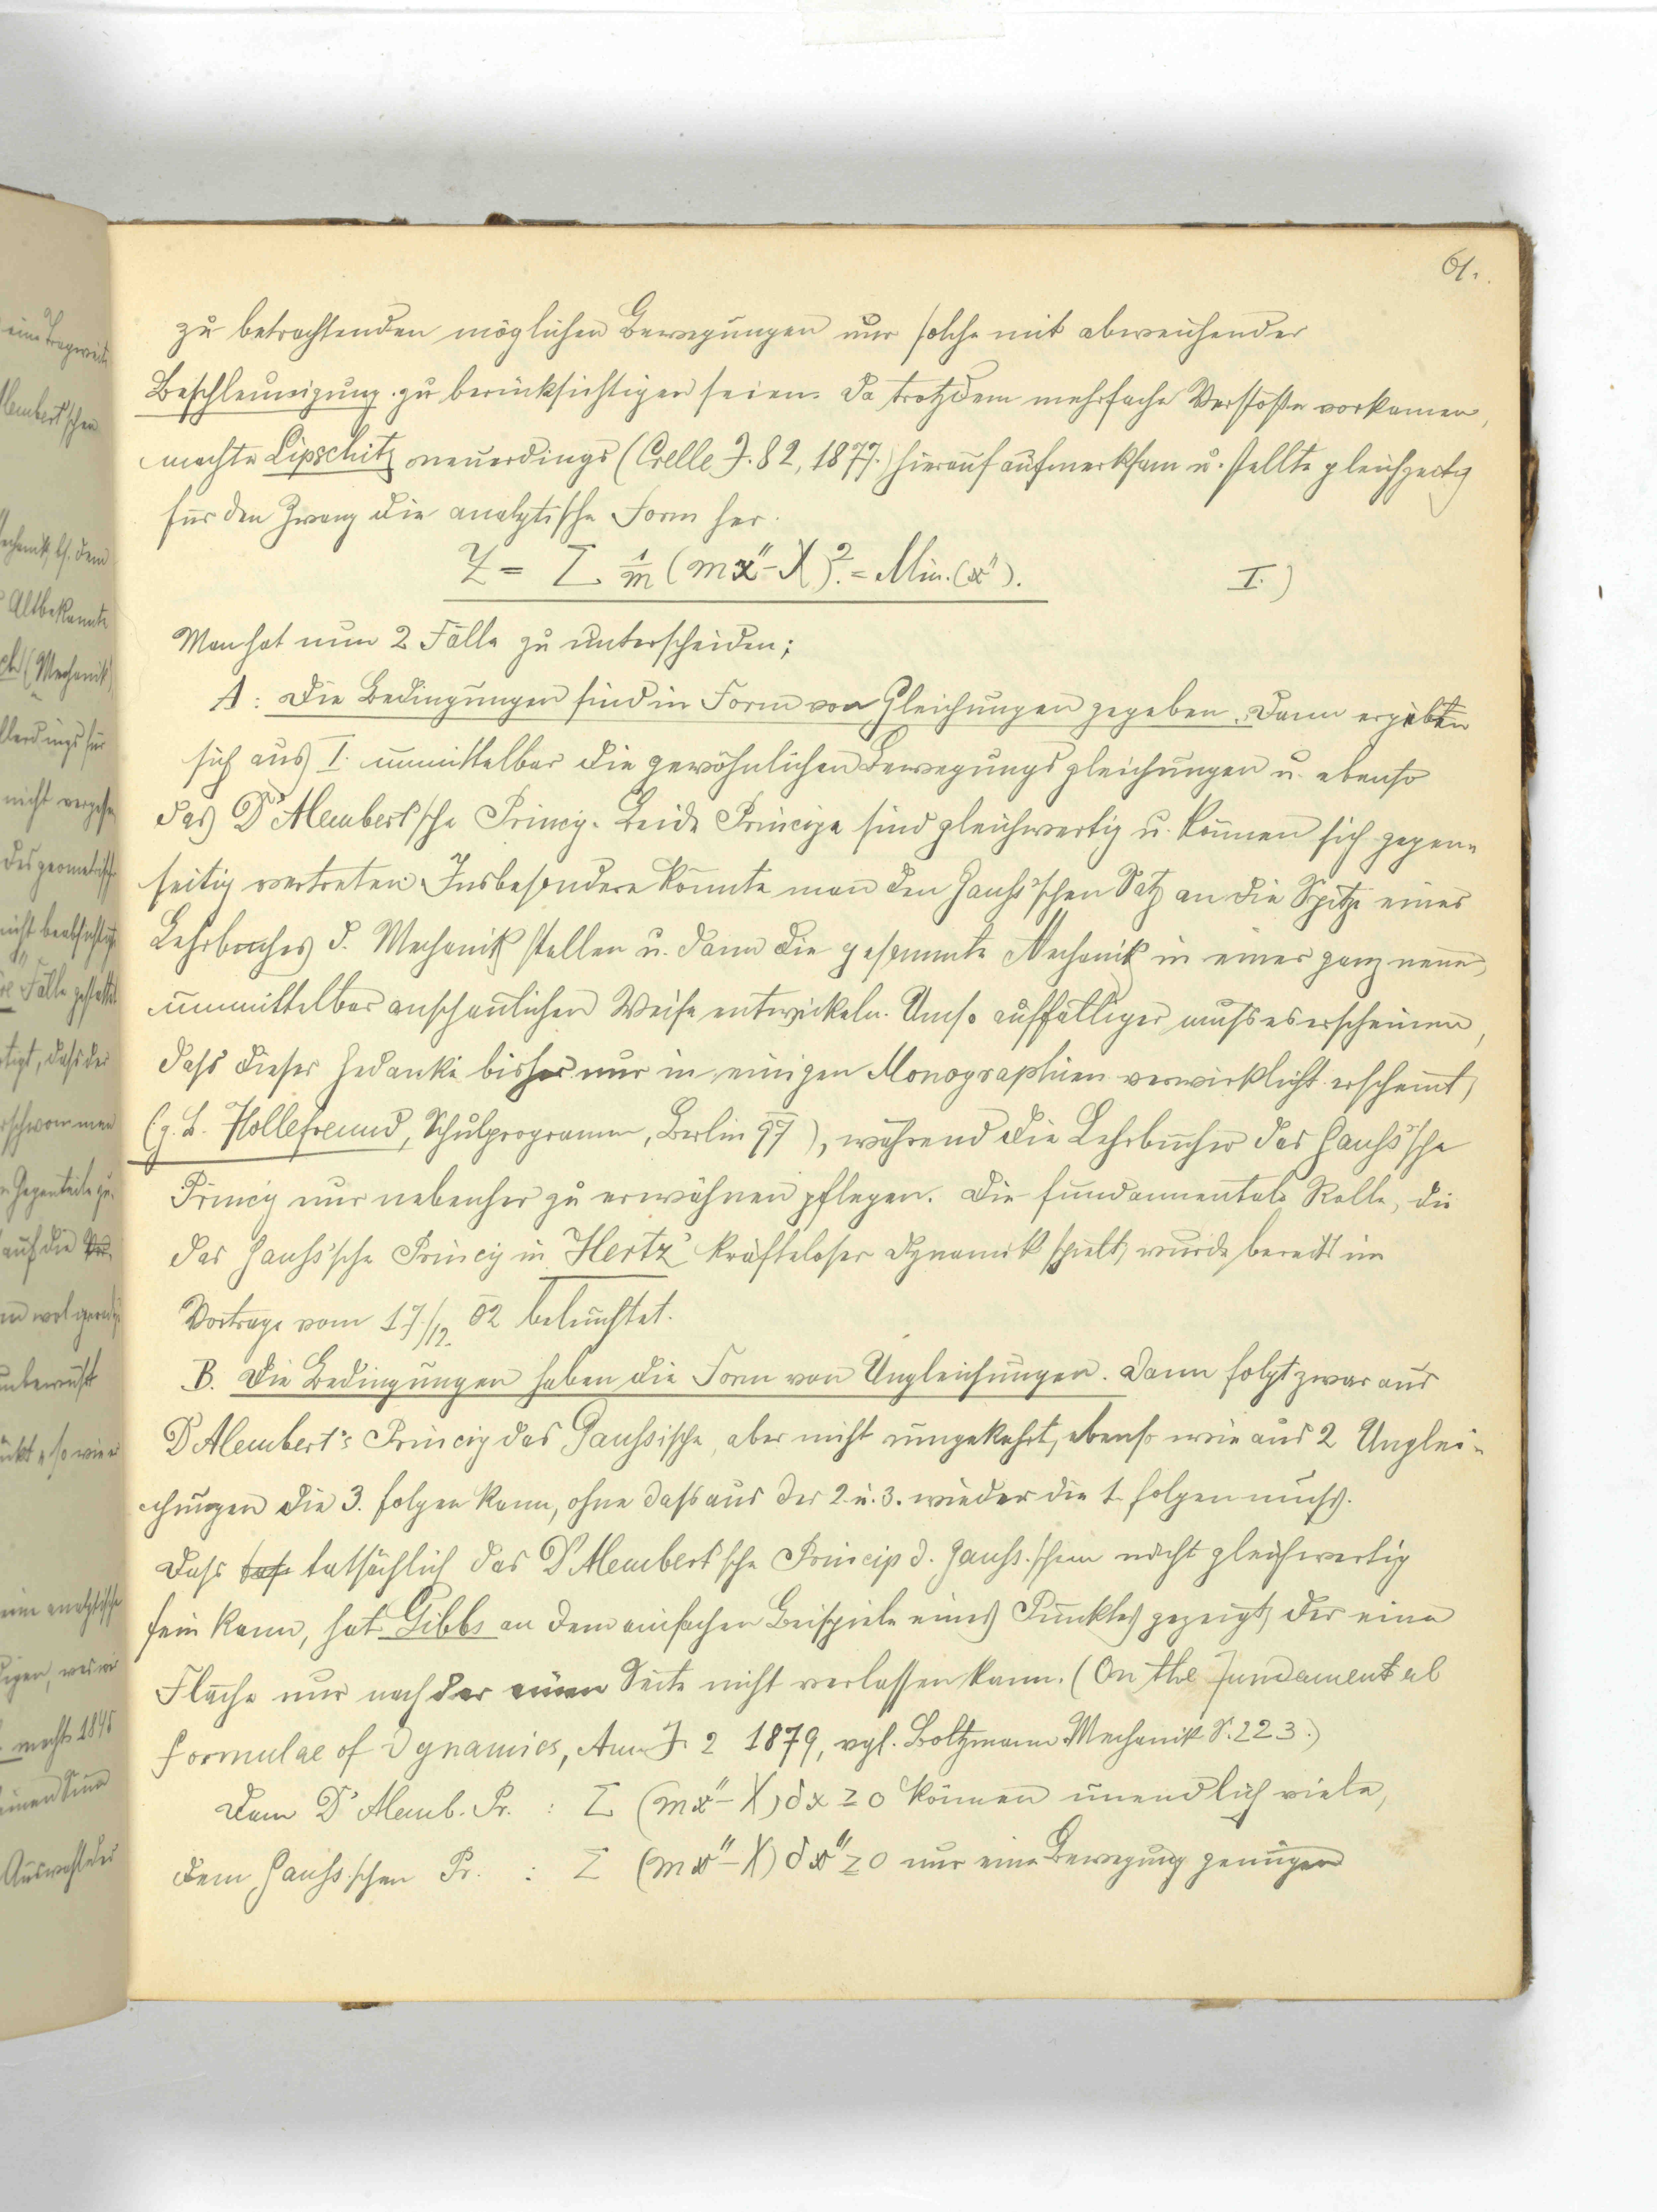 61.
zu betrachtenden möglichen Bewegungen nur solche mit abweichender
Beschleunigung zu berücksichtigen seien. Da trotzdem mehrfache Verstöße vorkamen,
machte Lipschitz neuerdings (Crelle J. 82, 1877.) hierauf aufmerksam u. stellte gleichzeitig
für den Zwang die analytische Form her.
Z = Σ 1/m (mx″ - X)². = Min. (x″). I.)
Man hat nun 2 Fälle zu unterscheiden;
A: Die Bedingungen sind in Form von Gleichungen gegeben. Dann ergeben
sich aus I. unmittelbar die gewöhnlichen Bewegungsgleichungen u. ebenso
das D'Alembert'sche Princip. Beide Principe sind gleichwertig u. können sich gegen-
seitig vertreten. Insbesondere könnte man den Gauß'schen Satz an die Spitze eines
Lehrbuches d. Mechanik stellen u. dann die gesammte Mechanik in einer ganz neuen,
unmittelbar anschaulichen Weise entwickeln. Umso auffälliger muss es erscheinen,
dass dieser Gedanke bisher nur in einigen Monographien verwirklicht erscheint,
(z. B. Hollefreund, Schulprogramm, Berlin 97), während die Lehrbücher das Gauß'sche
Princip nur nebenher zu erwähnen pflegen. Die fundamentale Rolle, die
das Gauß'sche Princip in Hertz' kräfteloser Dynamik spielt, wurde bereits im
Vortrage vom 17/12. 02 beleuchtet.
B. Die Bedingungen haben die Form von Ungleichungen. Dann folgt zwar aus
D'Alembert's Princip das Gaußsische, aber nicht umgekehrt, ebenso wie aus 2 Unglei-
chungen die 3. folgen kann, ohne dass aus der 2. u. 3. wieder die 1. folgen muss.
Dass tatsächlich das D'Alembert'sche Princip d. Gauß'schen nicht gleichwertig
sein kann, hat Gibbs an dem einfachen Beispiele eines Punktes gezeigt, der eine
Fläche nur nach der einen Seite nicht verlassen kann. (On the Fundamental
formulae of Dynamics, Am. J. 2 1879, vgl. Boltzmann Mechanik S. 223.)
Dem D'Alemb. Pr. : Σ (mx″ - X) δx ≥ 0 können unendlich viele,
dem Gauß'schen Pr. : Σ (mx″ - X) δx″ ≥ 0 nur eine Bewegung genügen